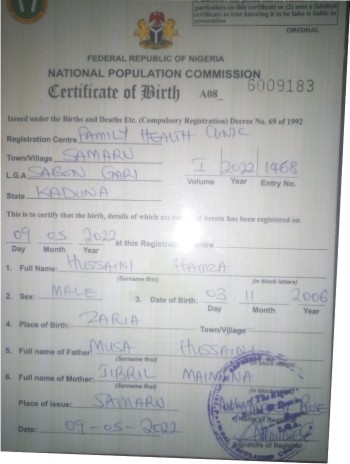 particulars on this certificate or (2) uses a falsified
certificate as true knowing it to be false is liable to
prosecution
ORIGINAL
FEDERAL REPUBLIC OF NIGERIA
NATIONAL POPULATION COMMISSION
Certificate of Birth A08_ 6009183
Issued under the Births and Deaths Etc. (Compulsory Registration) Decree No. 69 of 1992
Registration Centre FAMILY HEALTH CLINIC
Town/Village SAMARU
L.G.A SABON GARI
I 2022 1468
Volume Year Entry No.
State KADUNA
This is to certify that the birth, details of which are recorded herein has been registered on
09 05 2022 at this Registration Centre
Day Month Year
1. Full Name: HUSSAINI HAMZA
(Surname first) (in block letters)
2. Sex: MALE 3. Date of Birth: 03 11 2006
Day Month Year
4. Place of Birth: ZARIA
Town/Village
5. Full name of Father: MUSA HUSSAINI
(Surname first)
6. Full name of Mother: JIBRIL MAIMUNA
(Surname first)
Place of issue: SAMARU
Date: 09-05-2022
Signature of Registrar